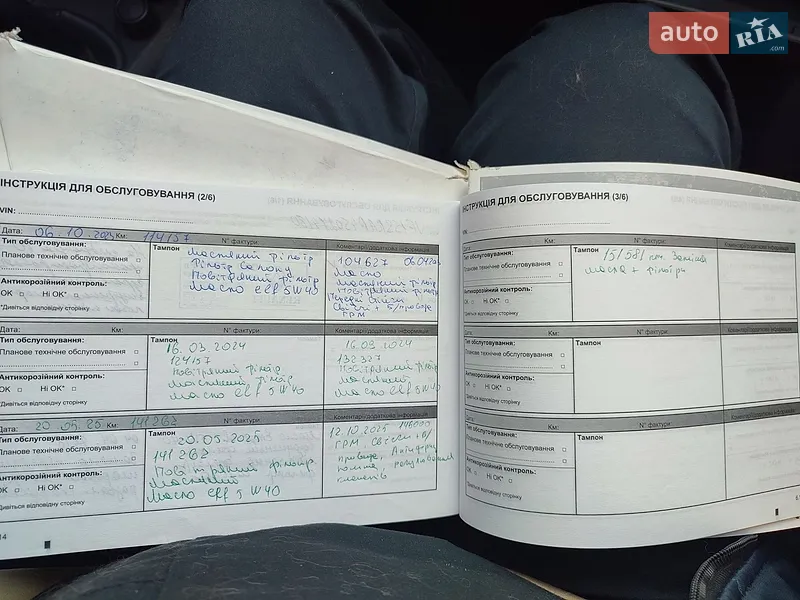 auto RIA.com
ІНСТРУКЦІЯ ДЛЯ ОБСЛУГОВУВАННЯ (2/6)
VIN:
Дата: 06.10.2024 Км: 114157 N° фактури:
Тип обслуговування:
Планове технічне обслуговування
Антикорозійний контроль:
OK Ні OK*
*Дивіться відповідну сторінку
Тампон
масляний фільтр
Фільтр салону
Повітряний фільтр
Масло elf 5W40
Коментарі/додаткова інформація
104627
Масло
Масляний фільтр
Повітряний фільтр
Свічі + в/провода
ГРМ
Дата: Км: N° фактури:
Тип обслуговування:
Планове технічне обслуговування
Антикорозійний контроль:
OK Ні OK*
*Дивіться відповідну сторінку
Тампон
16.03.2024
124157
Повітряний фільтр
масляний фільтр
масло elf 5W40
Коментарі/додаткова інформація
16.09.2024
132327
Повітряний фільтр
Масляний
масло elf 5W40
Дата: 20.05.25 Км: 141262 N° фактури:
Тип обслуговування:
Планове технічне обслуговування
Антикорозійний контроль:
OK Ні OK*
*Дивіться відповідну сторінку
Тампон
20.05.2025
141262
Повітряний фільтр
Масляний
Масло elf 5W40
Коментарі/додаткова інформація
12.10.2025
ГРМ, Свічі в/
провода,
клапанів
14
ІНСТРУКЦІЯ ДЛЯ ОБСЛУГОВУВАННЯ (3/6)
VIN:
Тип обслуговування:
Планове технічне обслуговування
Антикорозійний контроль:
OK Ні OK*
*Дивіться відповідну сторінку
N° фактури:
Тампон
151581 км. Заміна
масла + фільтри
Коментарі/додаткова інформація
Тип обслуговування:
Планове технічне обслуговування
Антикорозійний контроль:
OK Ні OK*
*Дивіться відповідну сторінку
N° фактури:
Тампон
Коментарі/додаткова інформація
Тип обслуговування:
Планове технічне обслуговування
Антикорозійний контроль:
OK Ні OK*
*Дивіться відповідну сторінку
N° фактури:
Тампон
Коментарі/додаткова інформація